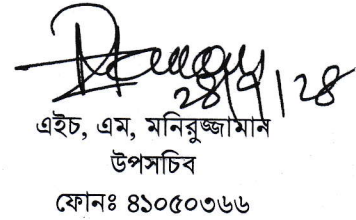 এইচ, এম, মনিরুজ্জামান
উপসচিব
ফোনঃ ৪১০৫০৩৬৬